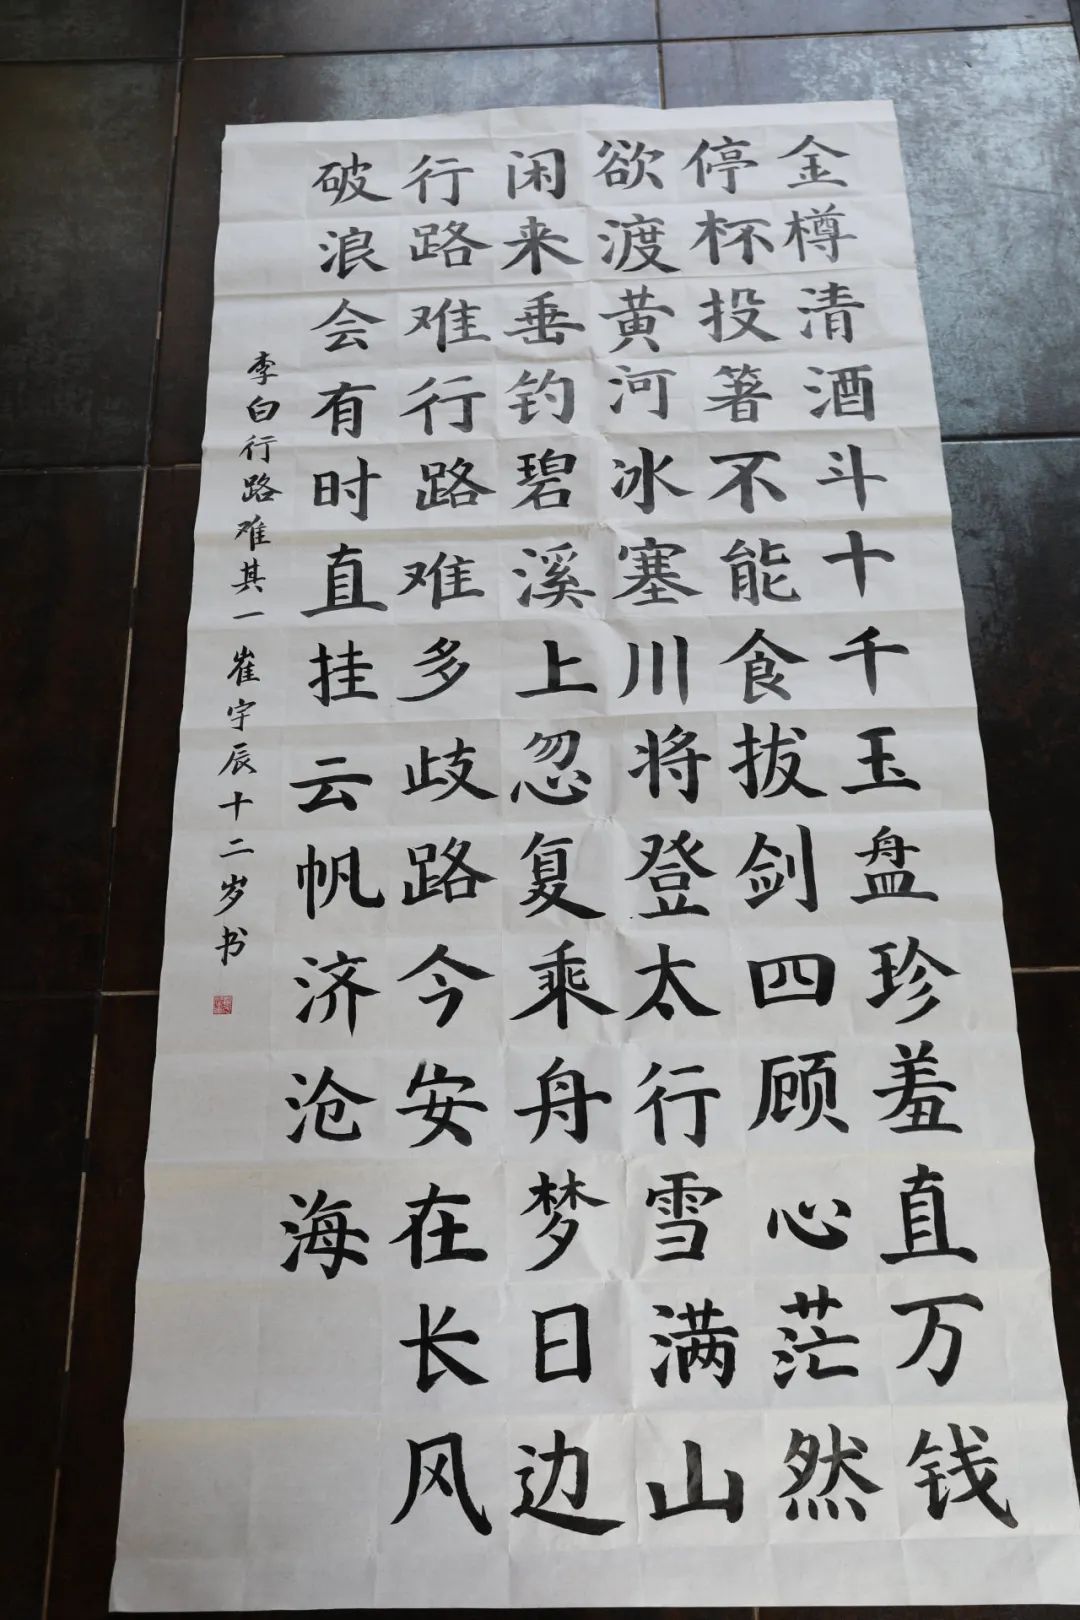 金樽清酒斗十千玉盘珍羞直万钱
停杯投箸不能食拔剑四顾心茫然
欲渡黄河冰塞川将登太行雪满山
闲来垂钓碧溪上忽复乘舟梦日边
行路难行路难多歧路今安在长风
破浪会有时直挂云帆济沧海
李白行路难其一崔宇辰十二岁书